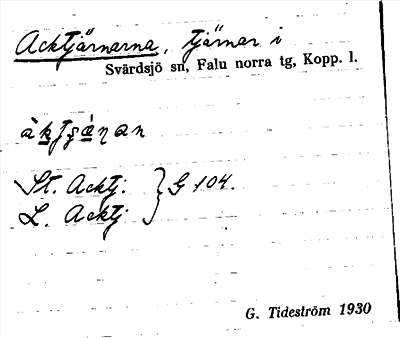 Acktjärnarna, tjärnar i
Svärdsjö sn, Falu norra tg, Kopp. l.
St. Acktj. } G 104.
L. Acktj.
G. Tideström 1930